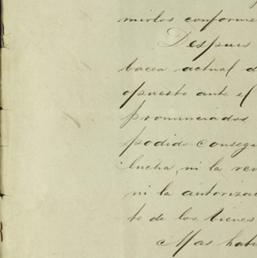 mirlos conforme
Despues
bacea actual d
opuesto ante el
pronunciados
podido consegu
lucha, ni la rev
ni la autorizac
to de los bienes
Mas hab